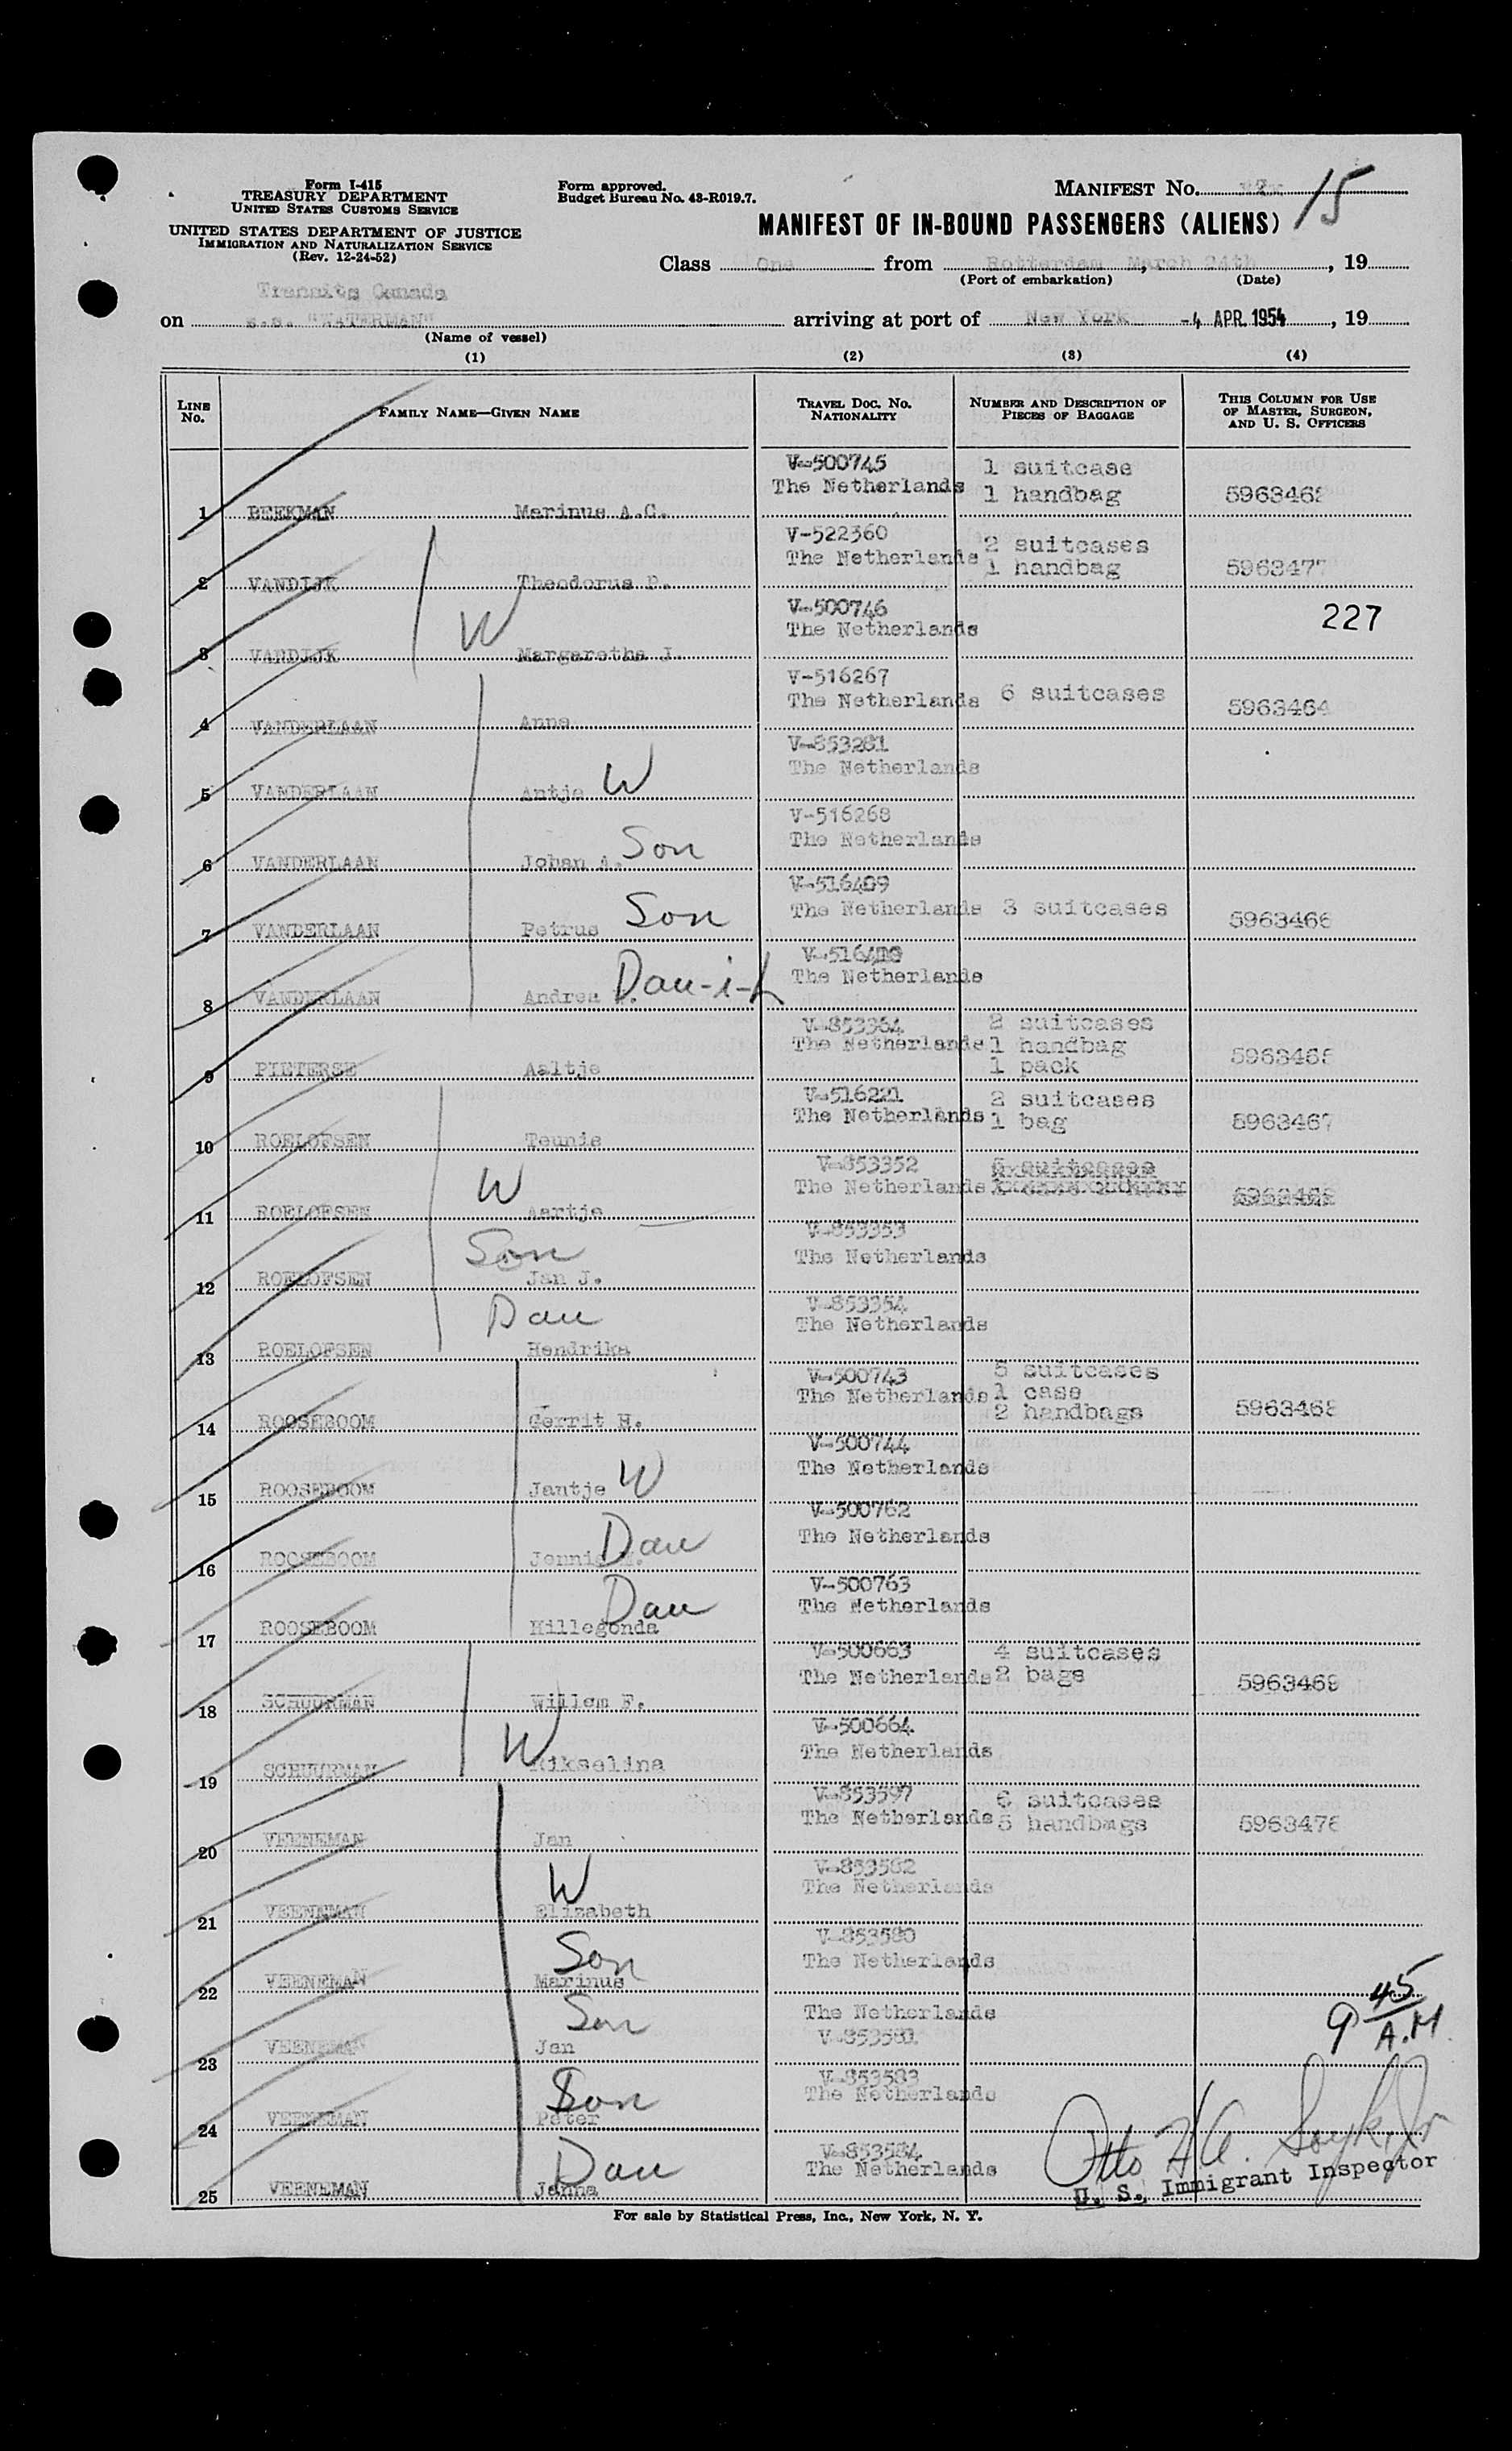 Form I-415
TREASURY DEPARTMENT
UNITED STATES CUSTOMS SERVICE
UNITED STATES DEPARTMENT OF JUSTICE
IMMIGRATION AND NATURALIZATION SERVICE
(Rev. 12-24-52)
Form approved.
Budget Bureau No. 43-R019.7.
MANIFEST No. 15
MANIFEST OF IN-BOUND PASSENGERS (ALIENS)
Class One from Rotterdam March 24th, 19
(Port of embarkation) (Date)
Transits Canada
on s.s. "WATERMAN" arriving at port of New York -4 APR. 1954, 19
(Name of vessel)
(1) (2) (3) (4)
LINE No. FAMILY NAME—GIVEN NAME TRAVEL DOC. No. NATIONALITY NUMBER AND DESCRIPTION OF PIECES OF BAGGAGE THIS COLUMN FOR USE OF MASTER, SURGEON, AND U. S. OFFICERS
V-500745 1 suitcase
The Netherlands 1 handbag
1 BEEKMAN Marinus A.C.
V-522360 2 suitcases
The Netherlands 1 handbag
2 VANDIJK Theodorus P.
V-500746
The Netherlands 227
3 VANDIJK W Margaretha J.
V-516267
The Netherlands 6 suitcases
4 VANDERLAAN Anna 5963464
V-853281
The Netherlands
5 VANDERLAAN Antje W
V-516268
The Netherlands
6 VANDERLAAN Johan A. Son
V-516409
The Netherlands 3 suitcases 5963466
7 VANDERLAAN Petrus Son
The Netherlands
8 VANDERLAAN Andrea Dau-i-L
V-853364 2 suitcases
The Netherlands 1 handbag
1 pack
9 PIETERSE Aaltje
V-516221 2 suitcases
The Netherlands 1 bag 5963467
10 ROELOFSEN Teunis
V-853352
The Netherlands
11 ROELOFSEN W Aartje
V-853353
The Netherlands
12 ROELOFSEN Son Jan J.
V-853354
The Netherlands
13 ROELOFSEN Dau Hendrika
V-500743 5 suitcases
The Netherlands 1 case
2 handbags 5963468
14 ROOSEBOOM Gerrit H.
V-500744
The Netherlands
15 ROOSEBOOM Jantje W
V-500762
The Netherlands
16 ROOSEBOOM Jennie Dau
V-500763
The Netherlands
17 ROOSEBOOM Hillegonda Dau
V-500663 4 suitcases
The Netherlands 2 bags 5963469
18 SCHUURMAN Willem F.
V-500664
The Netherlands
19 SCHUURMAN W Rikselina
V-853597 6 suitcases
The Netherlands 5 handbags 5963476
20 VEENEMAN Jan
V-853582
The Netherlands
21 VEENEMAN W Elizabeth
V-853580
The Netherlands
22 VEENEMAN Son Marinus
The Netherlands 9 45 A.M.
V-853581
23 VEENEMAN Son Jan
V-853583
The Netherlands
24 VEENEMAN Son Peter
V-853584
The Netherlands
25 VEENEMAN Dau Janna
U. S. Immigrant Inspector
For sale by Statistical Press, Inc., New York, N. Y.